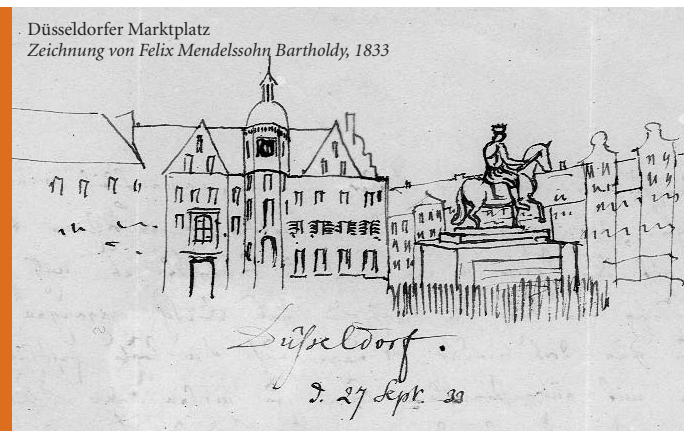 Düsseldorfer Marktplatz
Zeichnung von Felix Mendelssohn Bartholdy, 1833
Düsseldorf.
d. 27 Sept. 33